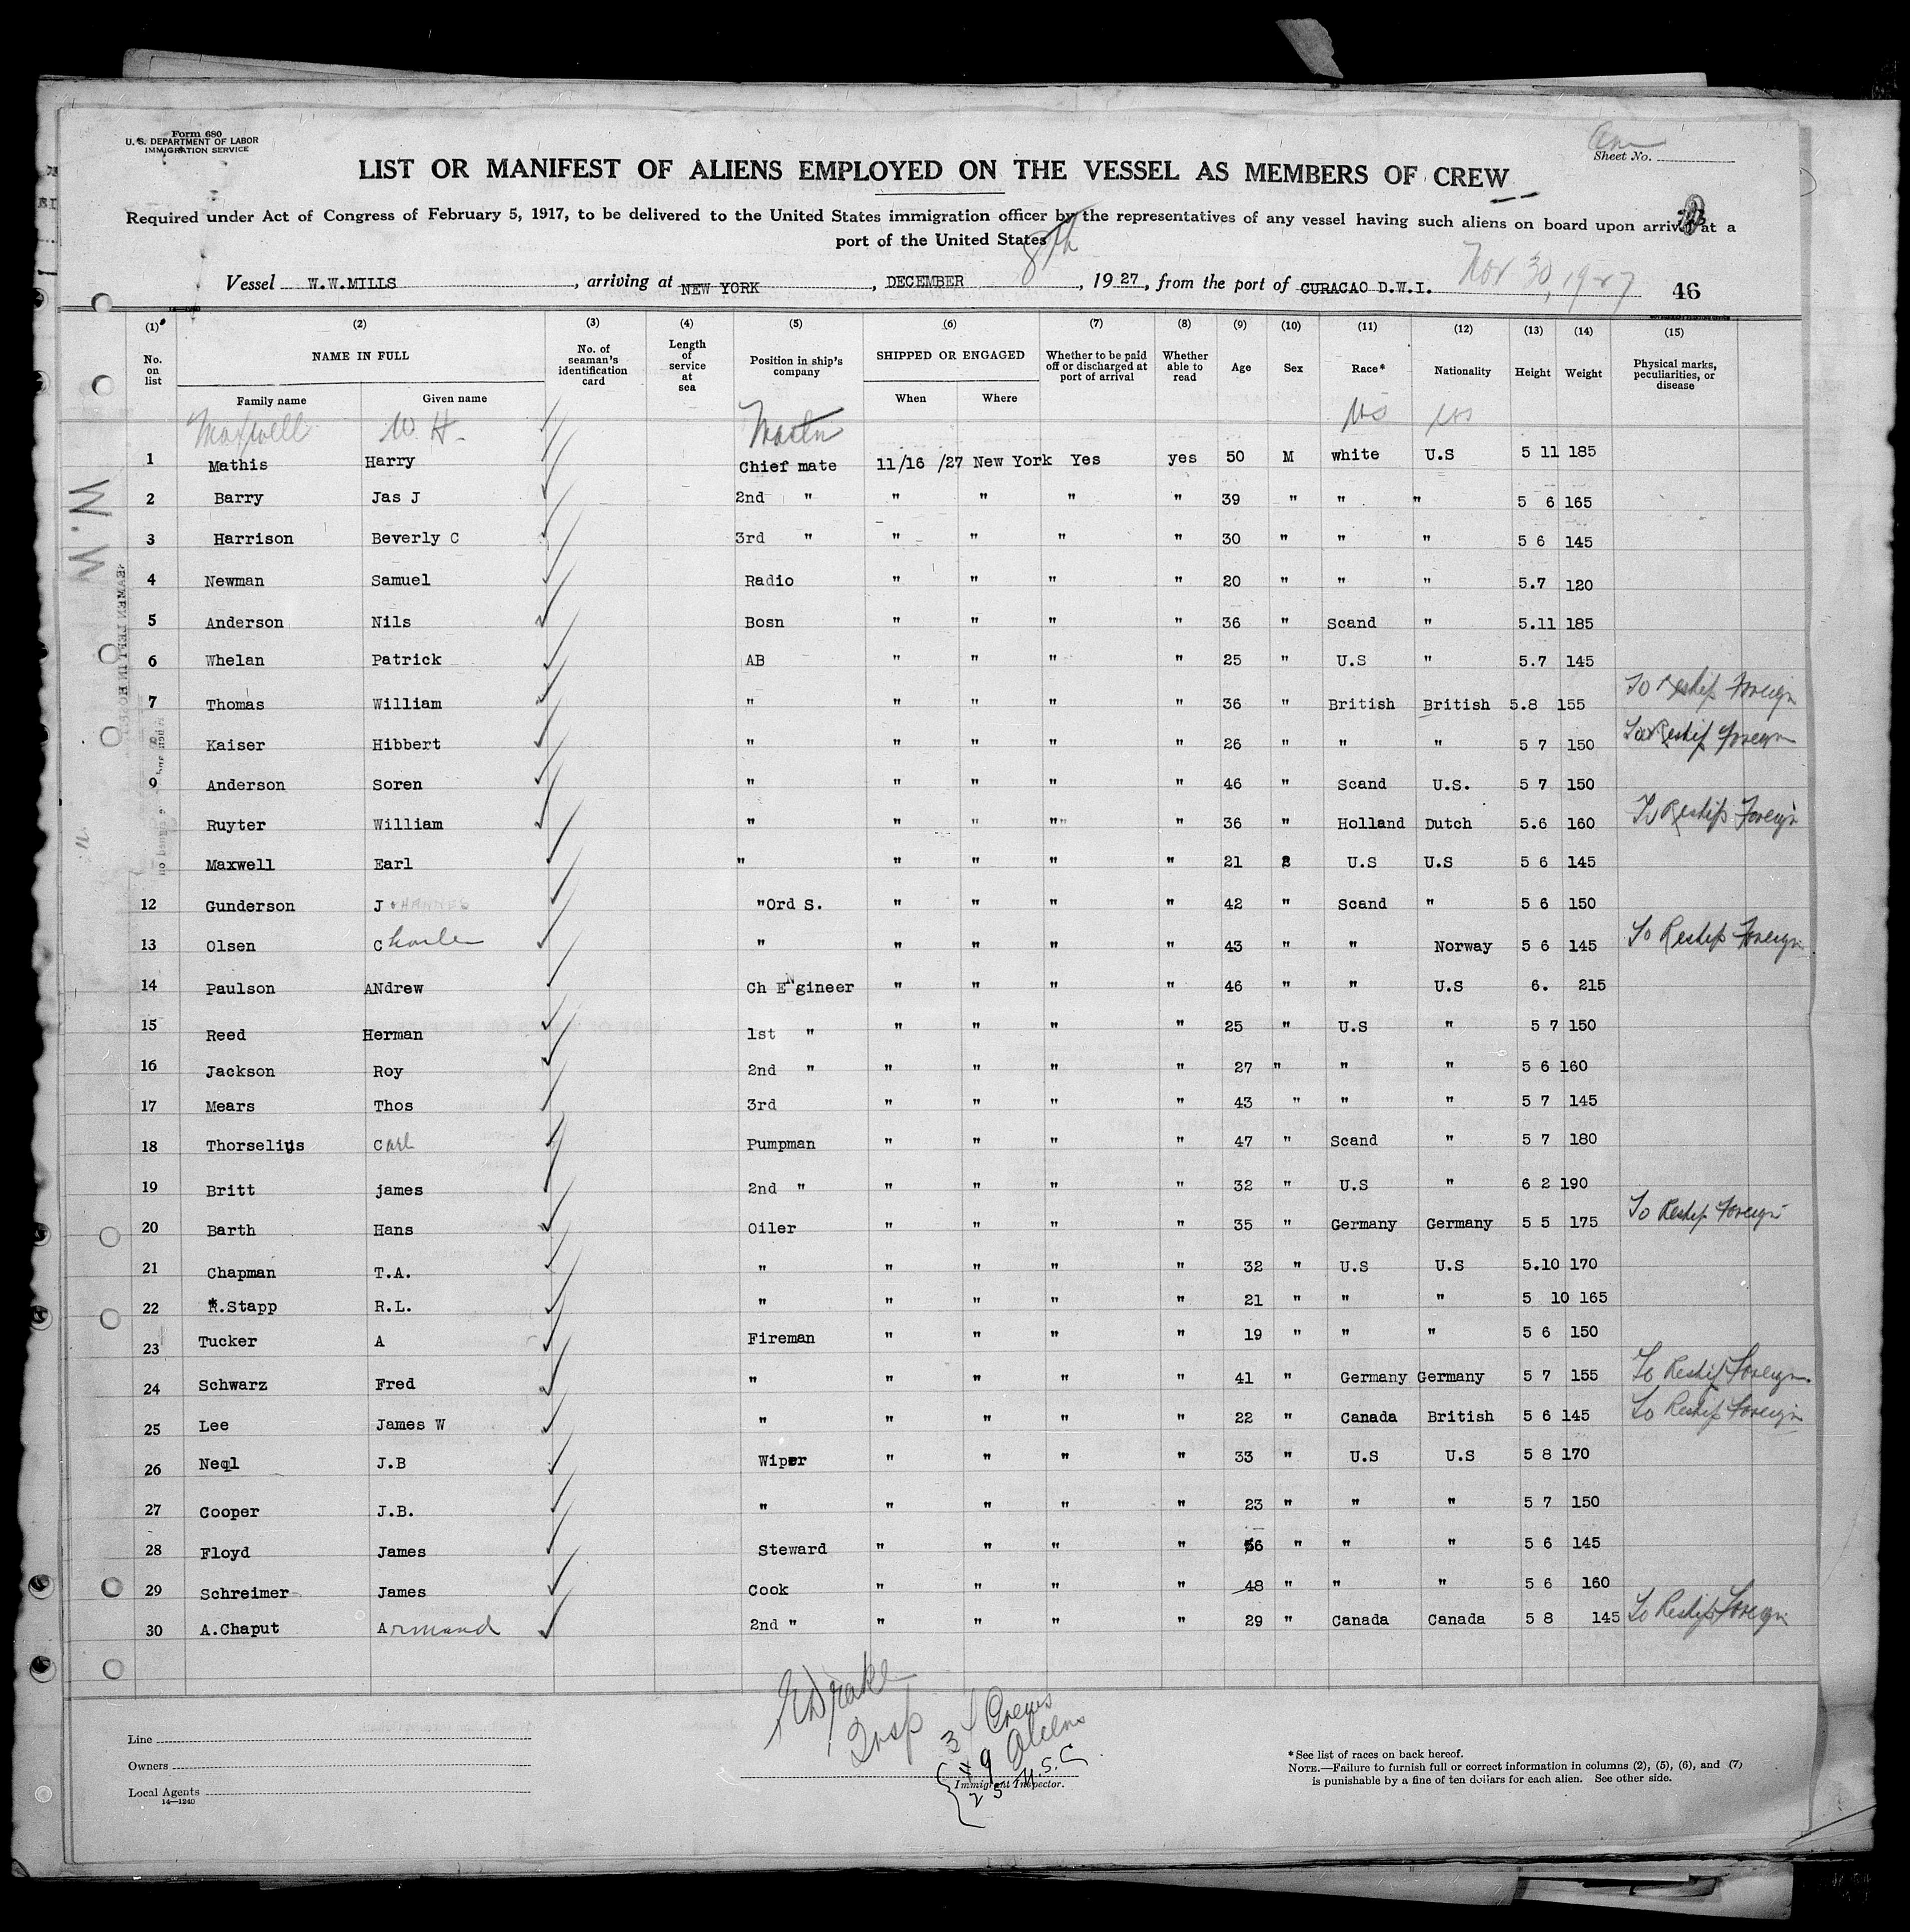 Form 680
U. S. DEPARTMENT OF LABOR
IMMIGRATION SERVICE
Sheet No.
LIST OR MANIFEST OF ALIENS EMPLOYED ON THE VESSEL AS MEMBERS OF CREW
Required under Act of Congress of February 5, 1917, to be delivered to the United States immigration officer by the representatives of any vessel having such aliens on board upon arrival at a
port of the United States
Vessel W.W.MILLS, arriving at NEW YORK, DECEMBER 8th, 1927, from the port of CURACAO D.W.I. Nov 30, 1927 46
(1) (2) (3) (4) (5) (6) (7) (8) (9) (10) (11) (12) (13) (14) (15)
No. on list NAME IN FULL Family name Given name No. of seaman's identification card Length of service at sea Position in ship's company SHIPPED OR ENGAGED When Where Whether to be paid off or discharged at port of arrival Whether able to read Age Sex Race* Nationality Height Weight Physical marks, peculiarities, or disease
Maxwell W. H. Master US US
1 Mathis Harry Chief mate 11/16 /27 New York Yes yes 50 M white U.S 5 11 185
2 Barry Jas J 2nd " " " " " 39 " " " 5 6 165
3 Harrison Beverly C 3rd " " " " " 30 " " " 5 6 145
4 Newman Samuel Radio " " " " 20 " " " 5.7 120
5 Anderson Nils Bosn " " " " 36 " Scand " 5.11 185
6 Whelan Patrick AB " " " " 25 " U.S " 5.7 145
7 Thomas William " " " " " 36 " British British 5.8 155 To Reship Foreign
8 Kaiser Hibbert " " " " " 26 " " " 5 7 150 To Reship Foreign
9 Anderson Soren " " " " " 46 " Scand U.S. 5 7 150
Ruyter William " " " " " 36 " Holland Dutch 5.6 160 To Reship Foreign
Maxwell Earl " " " " " 21 U.S U.S 5 6 145
12 Gunderson Johannes "Ord S. " " " " 42 " Scand " 5 6 150
13 Olsen Charles " " " " " 43 " " Norway 5 6 145 To Reship Foreign
14 Paulson ANdrew Ch ENgineer " " " " 46 " " U.S 6. 215
15 Reed Herman 1st " " " " " 25 " U.S " 5 7 150
16 Jackson Roy 2nd " " " " " 27 " " " 5 6 160
17 Mears Thos 3rd " " " " 43 " " " 5 7 145
18 Thorselius Carl Pumpman " " " " 47 " Scand " 5 7 180
19 Britt james 2nd " " " " " 32 " U.S " 6 2 190
20 Barth Hans Oiler " " " " 35 " Germany Germany 5 5 175 To Reship Foreign
21 Chapman T.A. " " " " " 32 " U.S U.S 5.10 170
22 R.Stapp R.L. " " " " " 21 " " " 5 10 165
23 Tucker A Fireman " " " " 19 " " " 5 6 150
24 Schwarz Fred " " " " " 41 " Germany Germany 5 7 155 To Reship Foreign
25 Lee James W " " " " " 22 " Canada British 5 6 145 To Reship Foreign
26 Neql J.B Wiper " " " " 33 " U.S U.S 5 8 170
27 Cooper J.B. " " " " " 23 " " " 5 7 150
28 Floyd James Steward " " " " 36 " " " 5 6 145
29 Schreimer James Cook " " " " 48 " " " 5 6 160
30 A.Chaput Armand 2nd " " " " " 29 " Canada Canada 5 8 145 To Reship Foreign
Drake
Insp
31 Crews
9 Aliens
U.S.C.
Line
Owners
Local Agents
14—1240
Immigrant Inspector.
*See list of races on back hereof.
NOTE.—Failure to furnish full or correct information in columns (2), (5), (6), and (7)
is punishable by a fine of ten dollars for each alien. See other side.